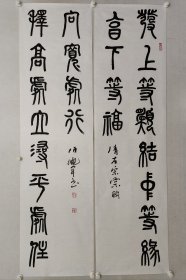 發上等願結中等緣
享下等福
清左宗棠聯
擇高處立尋平處住
向寬處行